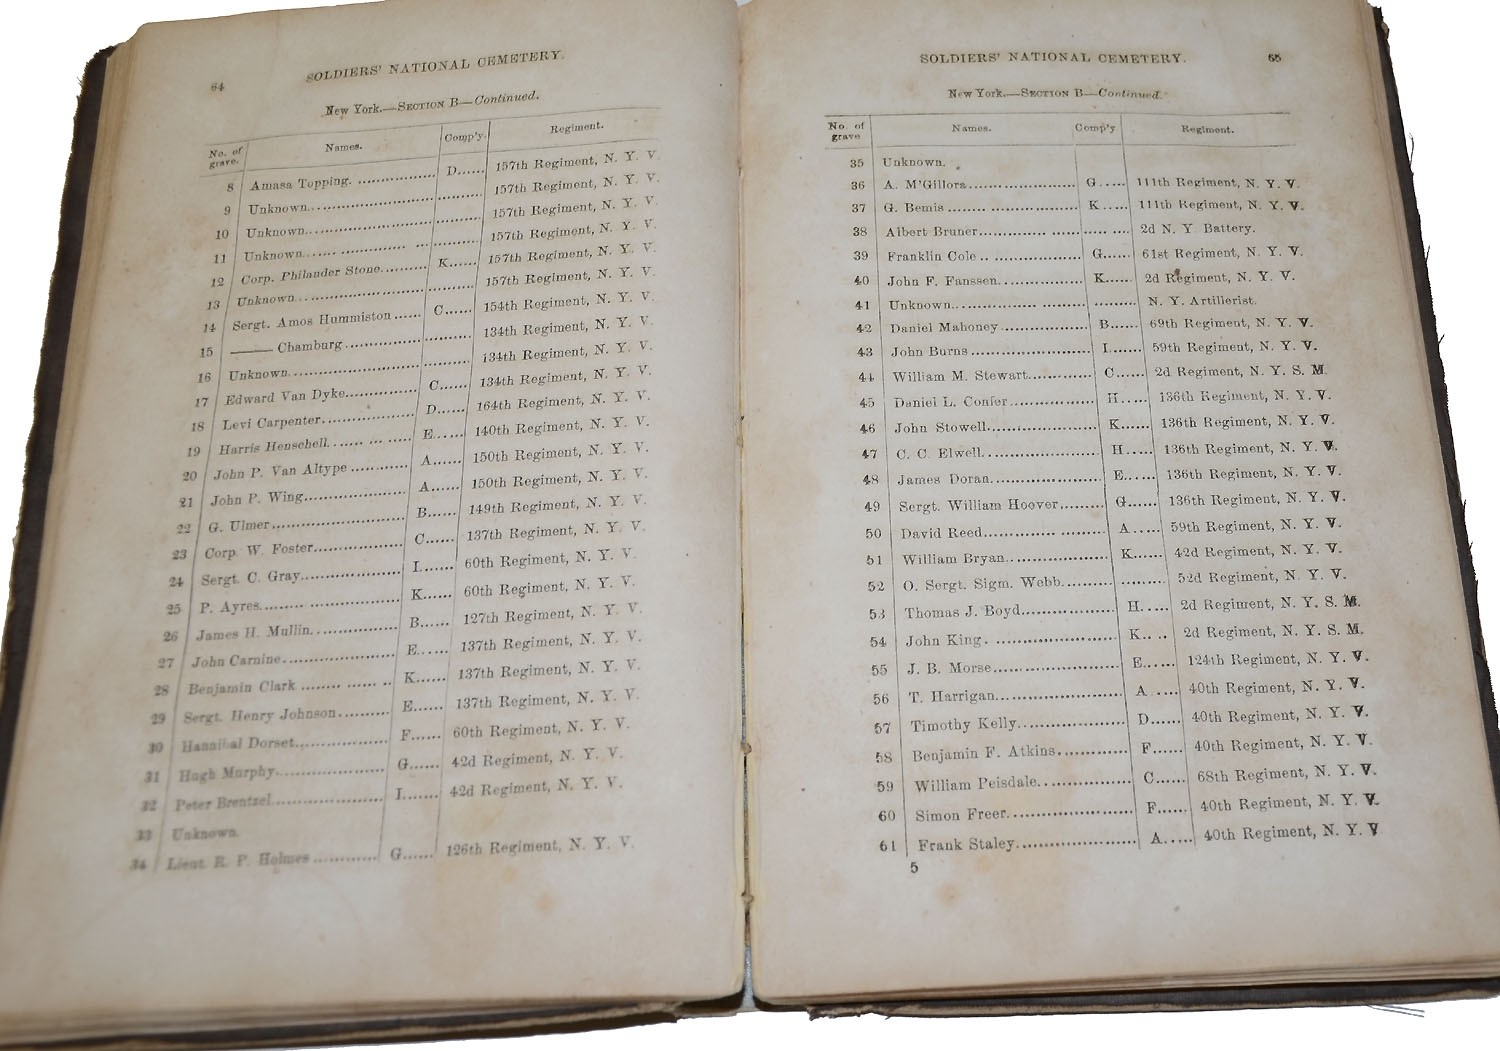 64
SOLDIERS' NATIONAL CEMETERY.
New York.—SECTION B—Continued.
No. of grave. Names. Comp'y. Regiment.
8 Amasa Topping. D...... 157th Regiment, N. Y. V.
9 Unknown. 157th Regiment, N. Y. V.
10 Unknown. 157th Regiment, N. Y. V.
11 Unknown. 157th Regiment, N. Y. V.
12 Corp. Philander Stone. K...... 157th Regiment, N. Y. V.
13 Unknown. 157th Regiment, N. Y. V.
14 Sergt. Amos Hummiston ...... C...... 154th Regiment, N. Y. V.
15 —— Chamburg 134th Regiment, N. Y. V.
16 Unknown. 134th Regiment, N. Y. V.
17 Edward Van Dyke. C...... 134th Regiment, N. Y. V.
18 Levi Carpenter D...... 164th Regiment, N. Y. V.
19 Harris Henschell. E...... 140th Regiment, N. Y. V.
20 John P. Van Altype A...... 150th Regiment, N. Y. V.
21 John P. Wing. A...... 150th Regiment, N. Y. V.
22 G. Ulmer B...... 149th Regiment, N. Y. V.
23 Corp. W. Foster C...... 137th Regiment, N. Y. V.
24 Sergt. C. Gray. I...... 60th Regiment, N. Y. V.
25 P. Ayres. K...... 60th Regiment, N. Y. V.
26 James H. Mullin. B...... 127th Regiment, N. Y. V.
27 John Carnine. E...... 137th Regiment, N. Y. V.
28 Benjamin Clark K...... 137th Regiment, N. Y. V.
29 Sergt. Henry Johnson E...... 137th Regiment, N. Y. V.
30 Hannibal Dorset. F...... 60th Regiment, N. Y. V.
31 Hugh Murphy. G...... 42d Regiment, N. Y. V.
32 Peter Brentzel I....... 42d Regiment, N. Y. V.
33 Unknown.
34 Lieut. R. P. Holmes G...... 126th Regiment, N. Y. V.
SOLDIERS' NATIONAL CEMETERY.
65
New York.—SECTION B—Continued.
No. of grave Names. Comp'y Regiment.
35 Unknown.
36 A. M'Gillora G...... 111th Regiment, N. Y. V.
37 G. Bemis K...... 111th Regiment, N. Y. V.
38 Albert Bruner 2d N. Y Battery.
39 Franklin Cole G...... 61st Regiment, N. Y. V.
40 John F. Fanssen. K...... 2d Regiment, N. Y. V.
41 Unknown. N. Y. Artillerist.
42 Daniel Mahoney B...... 69th Regiment, N. Y. V.
43 John Burns I....... 59th Regiment, N. Y. V.
44 William M. Stewart. C...... 2d Regiment, N. Y. S. M.
45 Daniel L. Confer H...... 136th Regiment, N. Y. V.
46 John Stowell K...... 136th Regiment, N. Y. V.
47 C. C. Elwell. H...... 136th Regiment, N. Y. V.
48 James Doran. E...... 136th Regiment, N. Y. V.
49 Sergt. William Hoover G...... 136th Regiment, N. Y. V.
50 David Reed A...... 59th Regiment, N. Y. V.
51 William Bryan. K...... 42d Regiment, N. Y. V.
52 O. Sergt. Sigm. Webb. 52d Regiment, N. Y. V.
53 Thomas J. Boyd H..... 2d Regiment, N. Y. S. M.
54 John King. K.. .. 2d Regiment, N. Y. S. M.
55 J. B. Morse E...... 124th Regiment, N. Y. V.
56 T. Harrigan. A ..... 40th Regiment, N. Y. V.
57 Timothy Kelly. D...... 40th Regiment, N. Y. V.
58 Benjamin F. Atkins F...... 40th Regiment, N. Y. V.
59 William Peisdale. C...... 68th Regiment, N. Y. V.
60 Simon Freer. F...... 40th Regiment, N. Y. V.
61 Frank Staley. A..... 40th Regiment, N. Y. V
5